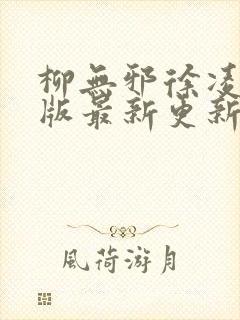 柳無邪徐凌
版最新更新
風荷游月